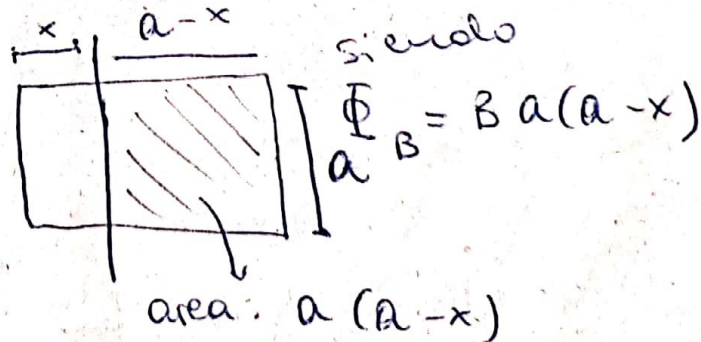 x a-x
siendo
a Φ_B = B a(a-x)
area: a (a-x)